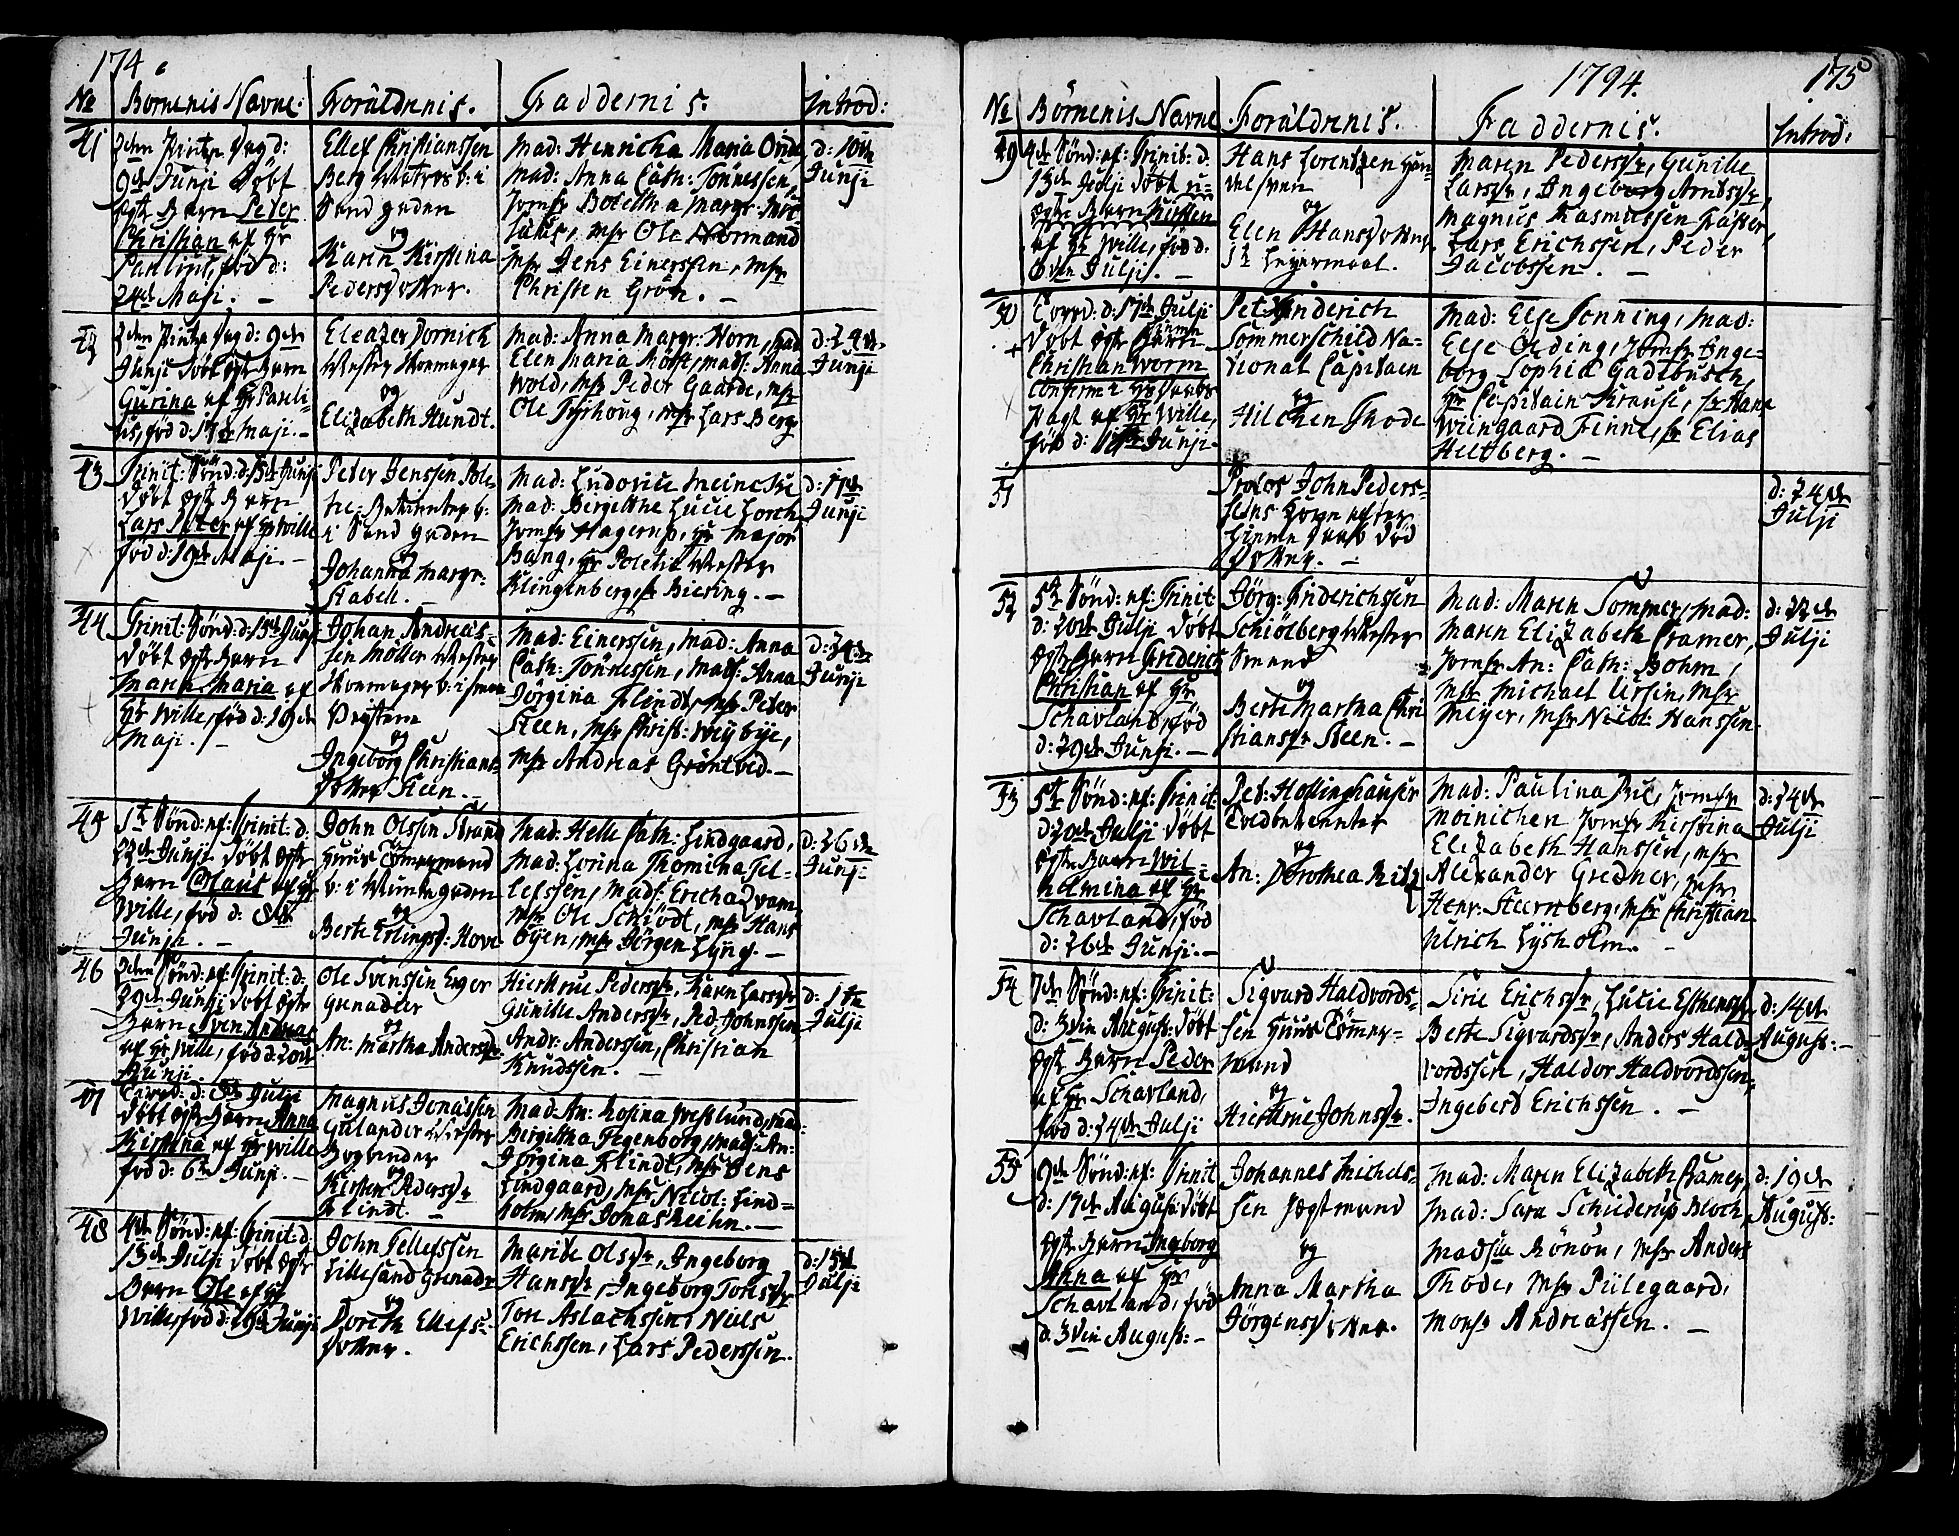 174
No Börnenis Navne: Forældrenis. Faddernis. Introd:
41
2den Pintze Dag d:
9de Junji Døbt
ægte Barn Peder
Christian af Hr
Paulinus, fød d:
24de Maji. —
Ellef Christianssen
Berg Matros b: i
Sand gaden
og
Karen Kirstina
Pedersdotter.
Mad: Henricha Maria
Mad: Anna Cath: Tønnessen,
Jomfr Bolettha Margr:
Msr Ole Normand
Msr Jens Einerssen, Msr
Christen Grøn. —
d: 10de
Junji
42
2den Pintze Dag d: 9de
Junji Døbt ægte Barn
Gurina af Hr Pauli-
us, fød d: 17de Maji. —
Eleazer Dornich
Mester Skomager
og
Elizabeth Hundt.
Mad: Anna Margr: Horn, Mad
Elen Maria Holst, Mads: Anna
Wold, Msr Peder Gaarde, Msr
Ole Tyrhoug, Msr Lars Berg
d: 29de
Junji
43
Trinit: Sønd: d: 15de Junji
Døbt ægte Barn
Lars Peter af Hr Wille
fød d: 19de Maji. —
Peder Jenssen Pole-
tie-Betienter b:
i Sand gaden
og
Johanna Margr:
Stabell.
Mad: Ludovice Meincke
Mad: Birgitthe Lucie Lorch
Jomfr Hagerup, Hr Major
Bang, Hr Politie Mester
Klingenberg, Biering. —
d: 17de
Junji
44
Trinit: Sønd: d: 15de Junji
Døbt ægte Barn
Maren Maria af
Hr Wille, fød d: 29de
Maji. —
Johan Andreas-
sen Møller Mester
Skomager b: i
og
Ingeborg Christians-
dotter Steen. —
Mad: Einerssen, Mad: Anna
Cath: Tønnessen, Mads: Anna
Jörgina Flindt, Msr Peter
Steen, Msr Christ: Weybye,
Msr Andreas Gröntved. —
d: 24de
Junji
45
1ste Sønd: ef: Trinit: d:
22de Junji Døbt ægte
Barn Olaus af Hr
Wille, fød d: 8de
Junji. —
John Olssen Strand
Huus Tömermand
b: i Munke gaden
og
Berte Erlingsd: Hove
Mad: Helle Cath: Lindgaard,
Mad: Lorina Thomicha Tel-
lefssen, Mads: Ericha
Msr Ole Schiödt, Msr Hans
Öyen, Msr Jörgen Lyng. —
d: 26de
Junji
46
2den Sønd: ef: Trinit: d:
29de Junji Døbt ægte
Barn Sven Andreas
af Hr Wille, fød d: 20de
Junji.
Ole Svenssen Eger
Grenadeer
og
An: Martha Andersdr
Hiertrue Pedersdr, Karn Larsdr
Gunille Andersdr, Ped: Johnssen
Andr: Anderssen, Christian
Knudssen. —
d: 1ste
Julji
47
Tirsd: d: 8de Julji
Døbt ægte Barn Anna
Kirstina af Hr Wille
fød d: 6te Junji. —
Magnus Jonassen
Gulander Mester
Bogbinder
og
Kirsten Pedersdr
Flindt. —
Mad: An: Rosina Westlund, Mad:
Bergitha Fegenborg, Mads: An-
Jörgina Flindt, Msr Jens
Lindgaard, Msr Nicol: Lind-
holm, Msr Jonas Keihn. —
48
4de Sønd: ef: Trinit: d:
13de Julji Døbt ægte
Barn Ole af Hr
Wille, fød d: 29de Junji
John Tellefssen
Lillesand Grenadr
og
Doreth Ellefs-
dotter.
Marite Olsdr, Ingeborg
Hansdr, Ingeborg Torisdr
Tore Aslachssen, Niels
Erichssen, Lars Pederssen.
d: 15de
Julji
1794. 175
No Börnenis Navne. Forældrenis. Faddernis. Introd:
49
4de Sønd: ef: Trinit: d.
13de Julji Døbt u-
ægte Barn Kirsten
af Hr Wille, fød d:
6den Julji. —
Hans Lorentzen Han-
delsvend
og
Elen Hansdotter
1ste Leyermaal.
Maren Pedersdr, Gunille
Larsdr, Ingeborg Arntsdr,
Magnus Rasmussen Graster,
Lars Erichssen, Peder
Jacobssen. —
50
Torsd: d: 17de Julji
Døbt ægte Barn
Christian Worm
af Hr Wille,
fød d: Junji.
Pet: Friderich
Sommerschild Na-
tional Capitain
og
Hilchen Thode
Mad: Else Lønning, Mad:
Else Öeding, Jomfr Inge-
borg Sophia Gadebusch,
Hr Capitain Krause, Sr Hans
Wiingaard Finne, Sr Elias
Heltberg. —
51
Proc: John Peders-
sens Kone efter
hiemme døbt død
Dotter. —
d: 24de
Julji
52
5te Sønd: ef: Trinit
d: 20de Julji Døbt
ægte Barn Friderich
Christian af Hr
Schavland, fød
d: 29de Junji. —
Jörg: Friderichssen
Schiölberg Mester
Smed
og
Berte Martha Chri-
stiansdr Steen. —
Mad: Maren Sommer, Mad:
Maren Elizabeth Cramer,
Jomfr An: Cath: Bohm,
Msr Michael Ursin, Msr
Meyer, Msr Nicol: Hanssen
d: 22de
Julji
53
5te Sønd: ef: Trinit
d: 20de Julji Døbt
ægte Barn Wil-
helmina af Hr
Schavland, fød
d: 26de Junji. —
Ped: Hollinghauser
Toldbetienter
og
An: Dorothea Ritz
Mad: Paulina Bie, Jomfr
Moinichen, Jomfr Kirstina
Elizabeth Hanssen, Msr
Alexander Gredner, Msr
Henr: Steernberg, Msr Christian
Ulrich Lysholm. —
d: 24de
Julji
54
7de Sønd: ef: Trinit:
d: 3die August: Døbt
ægte Barn Peder
af Hr Schavland,
fød d: 24de Julji
Sigvard Haldvords-
sen Huus Tömmer-
mand
og
Hiertrue Johnsdr.
Sirie Erichsdr, Lucie
Berte Sigvardsdr, Anders Hald-
vordssen, Haldor Haldvordssen,
Ingebert Erichssen. —
d: 14de
August: —
55
9de Sønd: ef: Trinit
d: 17de August: Døbt
ægte Barn Ingeborg
Anna af Hr
Schavland, fød
d: 3die August: —
Johannes Michels-
sen Fægtmand
og
Anna Martha
Jörgensdotter.
Mad: Maren Elizabeth Cramer,
Mad: Sara Schiederup Bloch
Madslle Rönou, Msr Anders
Thode, Msr Piilegaard,
Monsr Andreassen. —
d: 19de
August: